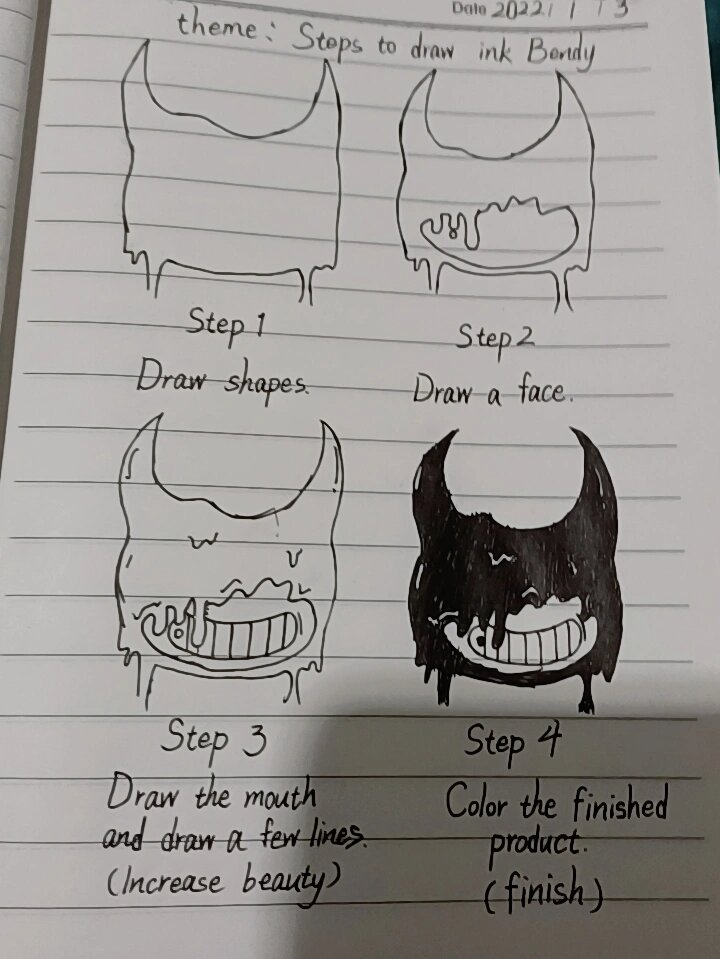 Date 2022 / 1 / 3
theme: Steps to draw ink Bendy
Step 1
Draw shapes.
Step 2
Draw a face.
Step 3
Draw the mouth
and draw a few lines.
(Increase beauty)
Step 4
Color the finished
product.
(finish)